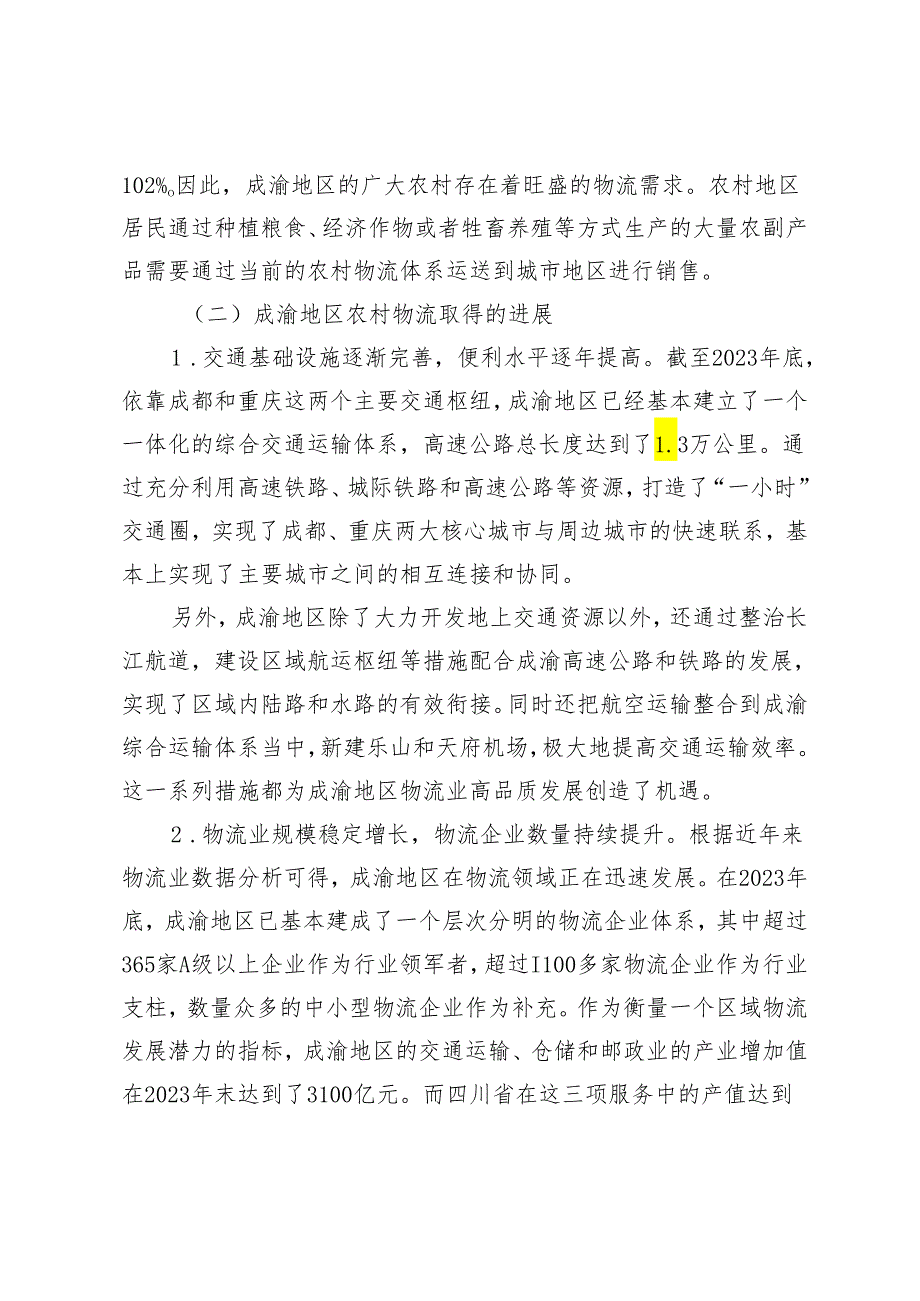 102%。因此，成渝地区的广大农村存在着旺盛的物流需求。农村地区
居民通过种植粮食、经济作物或者牲畜养殖等方式生产的大量农副产
品需要通过当前的农村物流体系运送到城市地区进行销售。
（二）成渝地区农村物流取得的进展
1.交通基础设施逐渐完善，便利水平逐年提高。截至2023年底，
依靠成都和重庆这两个主要交通枢纽，成渝地区已经基本建立了一个
一体化的综合交通运输体系，高速公路总长度达到了1.3万公里。通
过充分利用高速铁路、城际铁路和高速公路等资源，打造了“一小时”
交通圈，实现了成都、重庆两大核心城市与周边城市的快速联系，基
本上实现了主要城市之间的相互连接和协同。
另外，成渝地区除了大力开发地上交通资源以外，还通过整治长
江航道，建设区域航运枢纽等措施配合成渝高速公路和铁路的发展，
实现了区域内陆路和水路的有效衔接。同时还把航空运输整合到成渝
综合运输体系当中，新建乐山和天府机场，极大地提高交通运输效率。
这一系列措施都为成渝地区物流业高品质发展创造了机遇。
2.物流业规模稳定增长，物流企业数量持续提升。根据近年来
物流业数据分析可得，成渝地区在物流领域正在迅速发展。在2023年
底，成渝地区已基本建成了一个层次分明的物流企业体系，其中超过
365家A级以上企业作为行业领军者，超过I100多家物流企业作为行业
支柱，数量众多的中小型物流企业作为补充。作为衡量一个区域物流
发展潜力的指标，成渝地区的交通运输、仓储和邮政业的产业增加值
在2023年末达到了3100亿元。而四川省在这三项服务中的产值达到